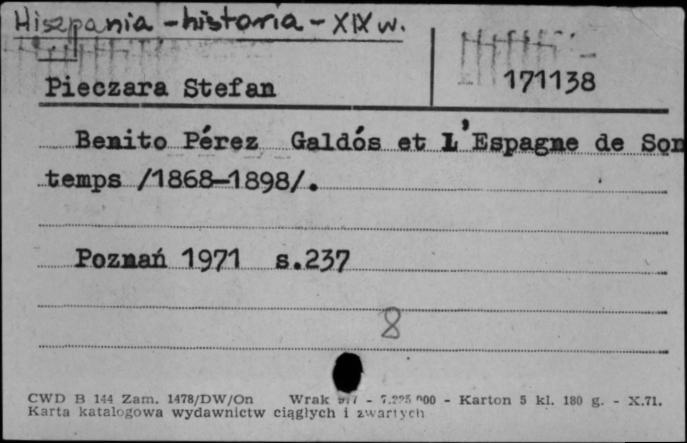 Hiszpania - historia - XIX w.
Pieczara Stefan 171138
Benito Pérez Galdós et L'Espagne de Son
temps /1868-1898/.
Poznań 1971 s.237
8
CWD B 144 Zam. 1478/DW/On Wrak - Karton 5 kl. 180 g. - X.71.
Karta katalogowa wydawnictw ciągłych i zwartych